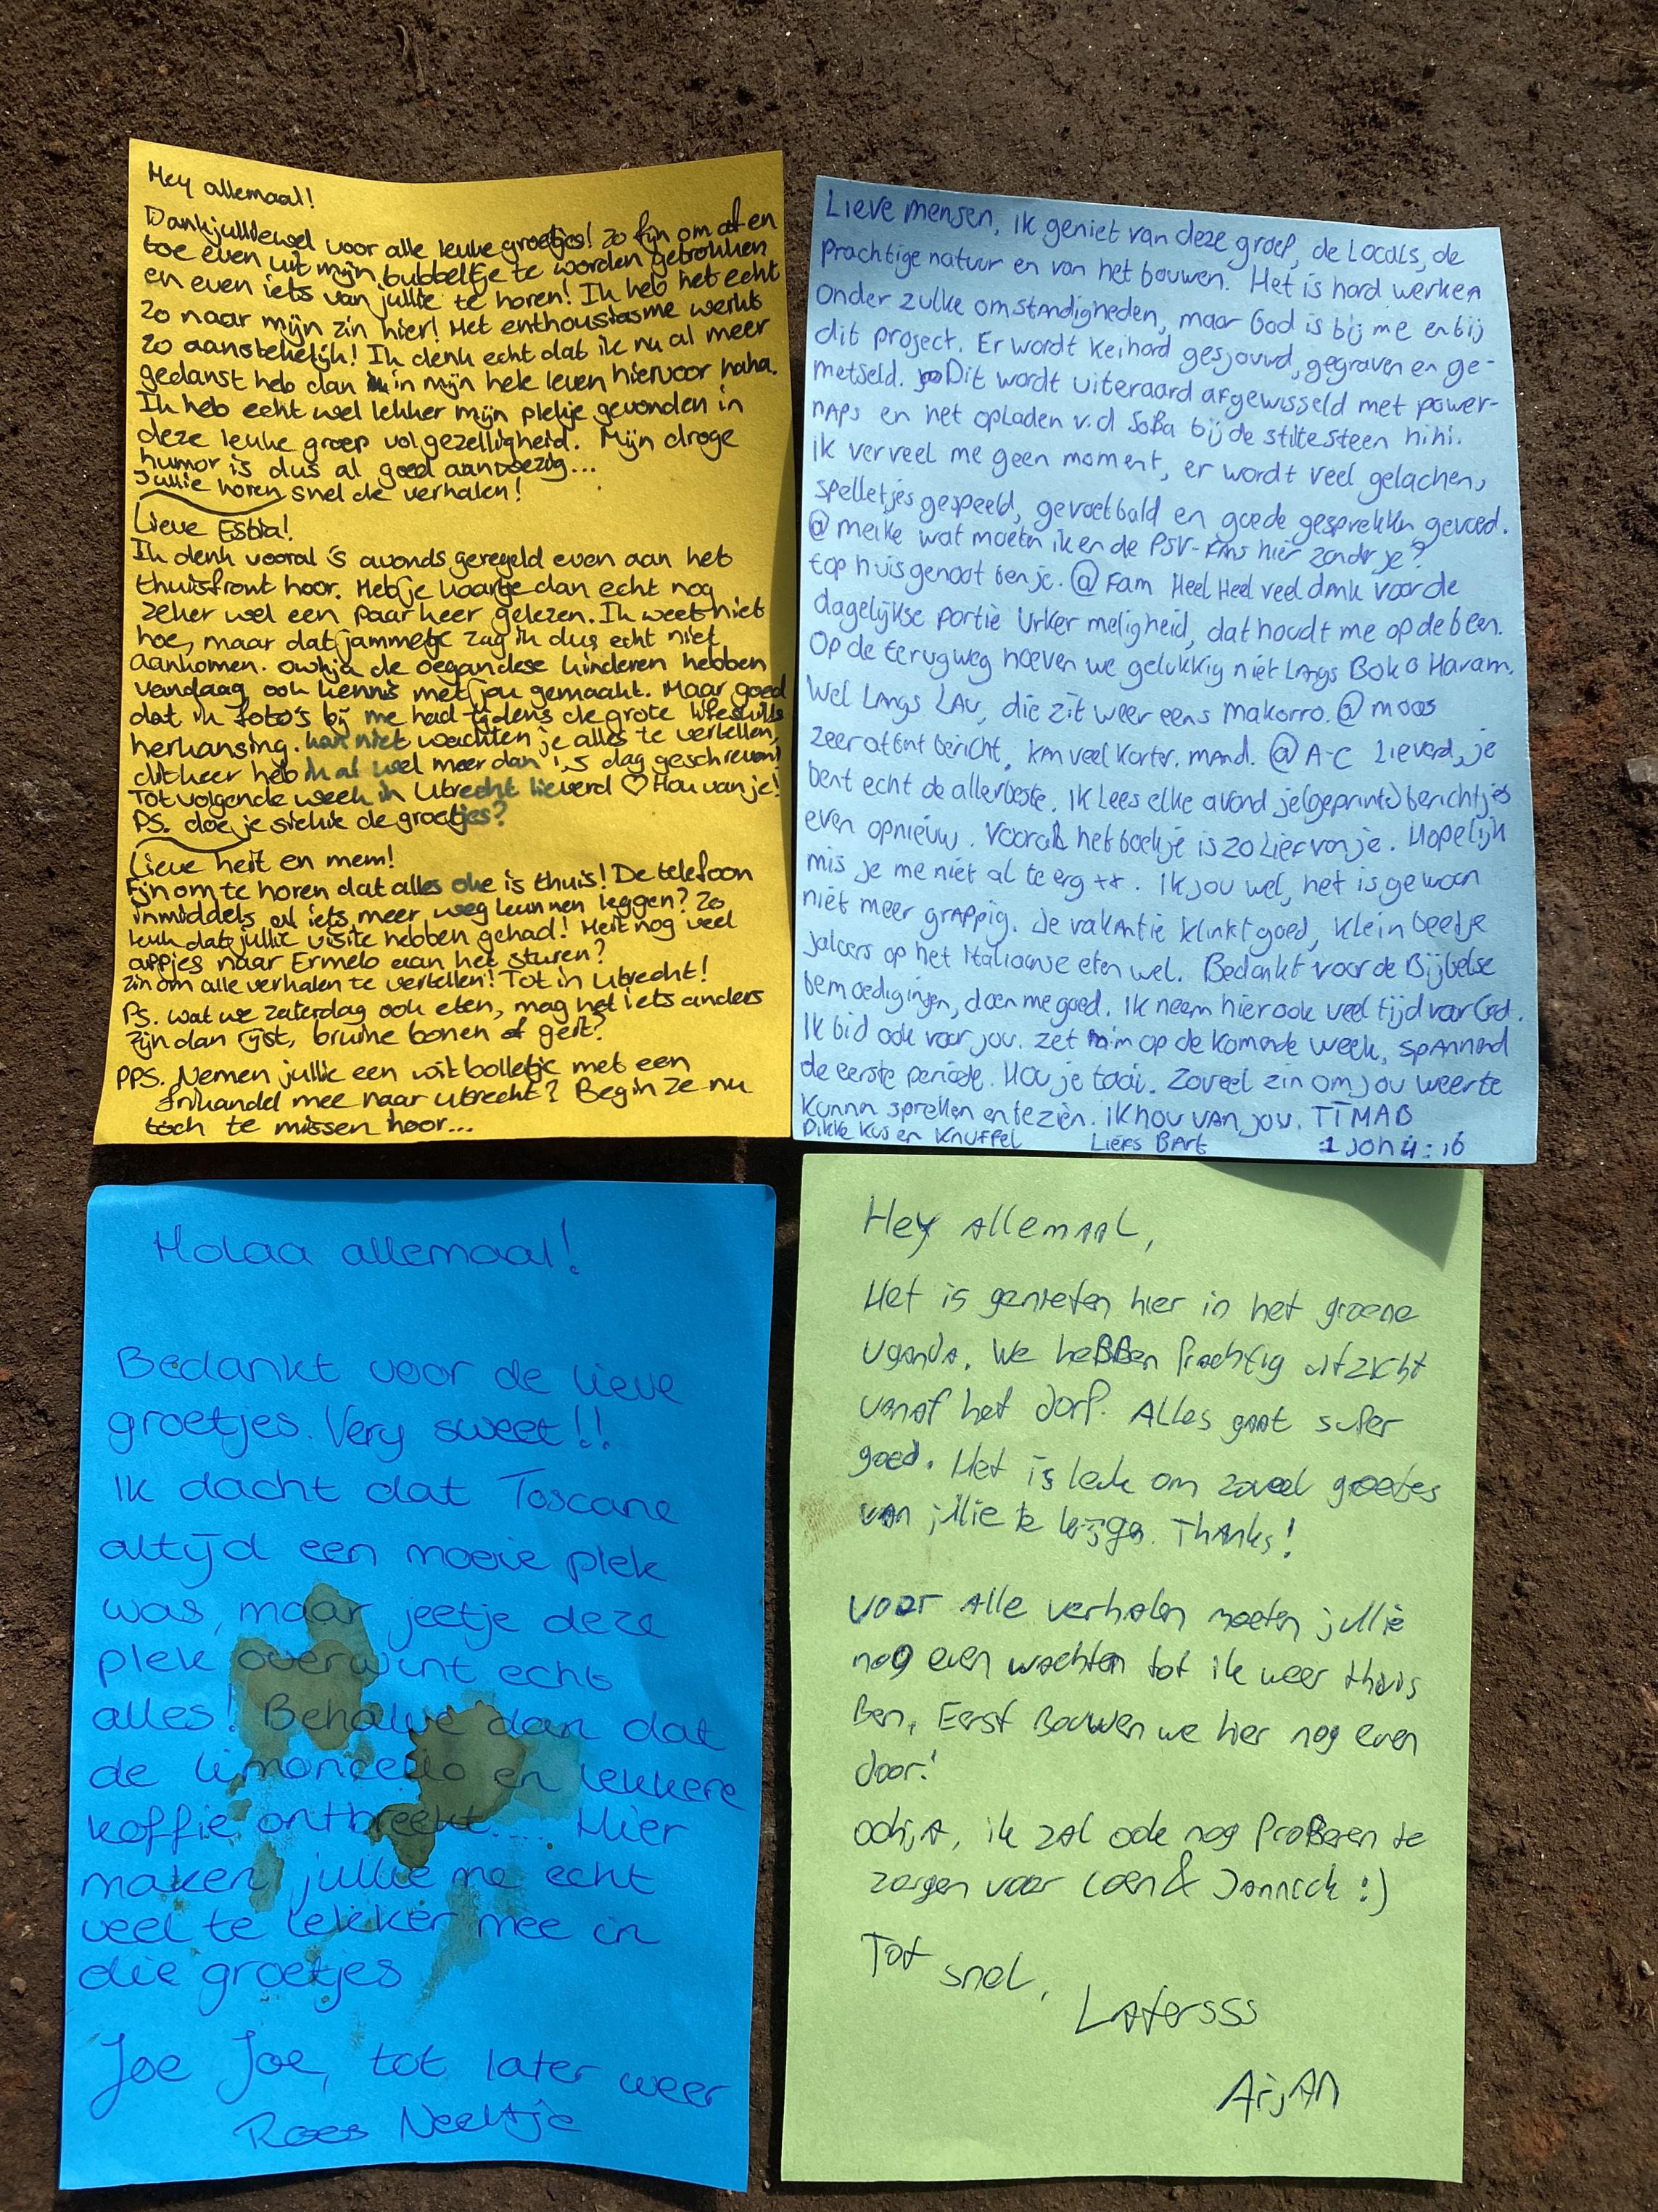 Hey allemaal!
Dankjulliewel voor alle leuke groetjes! Zo fijn om af en
toe even uit mijn bubbeltje te worden getrokken
en even iets van jullie te horen! Ik heb het echt
zo naar mijn zin hier! Het enthousiasme werkt
zo aanstekelijk! Ik denk echt dat ik nu al meer
gedanst heb dan in mijn hele leven hiervoor haha.
Ik heb echt wel lekker mijn plekje gevonden in
deze leuke groep vol gezelligheid. Mijn droge
humor is dus al goed aanwezig...
Jullie horen snel de verhalen!
Lieve Esbia!
Ik denk vooral 's avonds geregeld even aan het
thuisfront hoor. Heb je kaartje dan echt nog
zeker wel een paar keer gelezen. Ik weet niet
hoe, maar dat jammetje zag ik dus echt niet
aankomen. Owhja de oegandese kinderen hebben
vandaag ook kennis met jou gemaakt. Maar goed
dat ik foto's bij me had tijdens de grote
herkansing. kan niet wachten je alles te vertellen,
dit keer heb ik al wel meer dan 1,5 dag geschreven!
Tot volgende week in Utrecht lieverd ♡ Hou van je!
PS. doe je sickie de groetjes?
Lieve heit en mem!
Fijn om te horen dat alles oke is thuis! De telefoon
inmiddels al iets meer weg kunnen leggen? Zo
leuk dat jullie visite hebben gehad! Heit nog veel
appjes naar Ermelo aan het sturen?
Zin om alle verhalen te vertellen! Tot in Utrecht!
Ps. wat we zaterdag ook eten, mag het iets anders
zijn dan rijst, bruine bonen of geit?
PPS. Nemen jullie een wit bolletje met een
frikandel mee naar Utrecht? Begin ze nu
toch te missen hoor...
Lieve mensen, ik geniet van deze groep, de Locals, de
prachtige natuur en van het bouwen. Het is hard werken
onder zulke omstandigheden, maar God is bij me en bij
dit project. Er wordt keihard gesjouwd, gegraven en ge-
metseld. Dit wordt uiteraard afgewisseld met power-
naps en het opladen v.d SoBa bij de stilte steen hihi.
ik verveel me geen moment, er wordt veel gelachen,
spelletjes gespeeld, gevoetbald en goede gesprekken gevoed.
@ meike wat moeten ik en de PSV-fans hier zonder je?
top huisgenoot ben je. @ Fam Heel Heel veel dank voor de
dagelijkse portie Urker meligheid, dat houdt me op de been.
Op de terugweg hoeven we gelukkig niet Langs Boko Haram.
Wel Langs LAV, die zit weer eens Makorro. @ moos
zeer attent bericht, kan veel korter. mand. @ A-C Lieverd, je
bent echt de allerbeste. Ik Lees elke avond je (geprinte) berichtjes
even opnieuw. Vooral het boekje is zo Lief van je. Hopelijk
mis je me niet al te erg xx. Ik jou wel, het is gewoon
niet meer grappig. Je vakantie klinkt goed, klein beetje
jaloers op het Italiaanse eten wel. Bedankt voor de Bijbelse
bemoedigingen, doen me goed. Ik neem hier ook veel tijd voor God.
Ik bid ook voor jou. zet 'm op de komende week, spannend
de eerste periode. Hou je taai. Zoveel zin om jou weer te
kunnen spreken en te zien. ik hou van jou. TTMAB
Dikke kus en knuffel Liefs Bart 1 Joh 4:16
Holaa allemaal!
Bedankt voor de lieve
groetjes. Very sweet!!
Ik dacht dat Toscane
altijd een mooie plek
was, maar jeetje deze
plek overwint echt
alles! Behalve dan dat
de limoncello en lekkere
koffie ontbreekt.... Hier
maken jullie me echt
veel te lekker mee in
die groetjes
Joe Joe, tot later weer
Roes Neeltje
Hey Allemaal,
Het is genieten hier in het groene
Uganda. We heBBen Prachtig uitzicht
vanaf het dorp. Alles gaat super
goed. Het is leuk om zoveel groetjes
van jullie te krijgen. Thanks!
Voor Alle verhalen moeten jullie
nog even wachten tot ik weer thuis
Ben, Eerst Bouwen we hier nog even
door!
Ooh ja, ik zal ook nog Proberen te
zorgen voor Coen & Jannick :)
Tot snel,
Latersss
Arjan